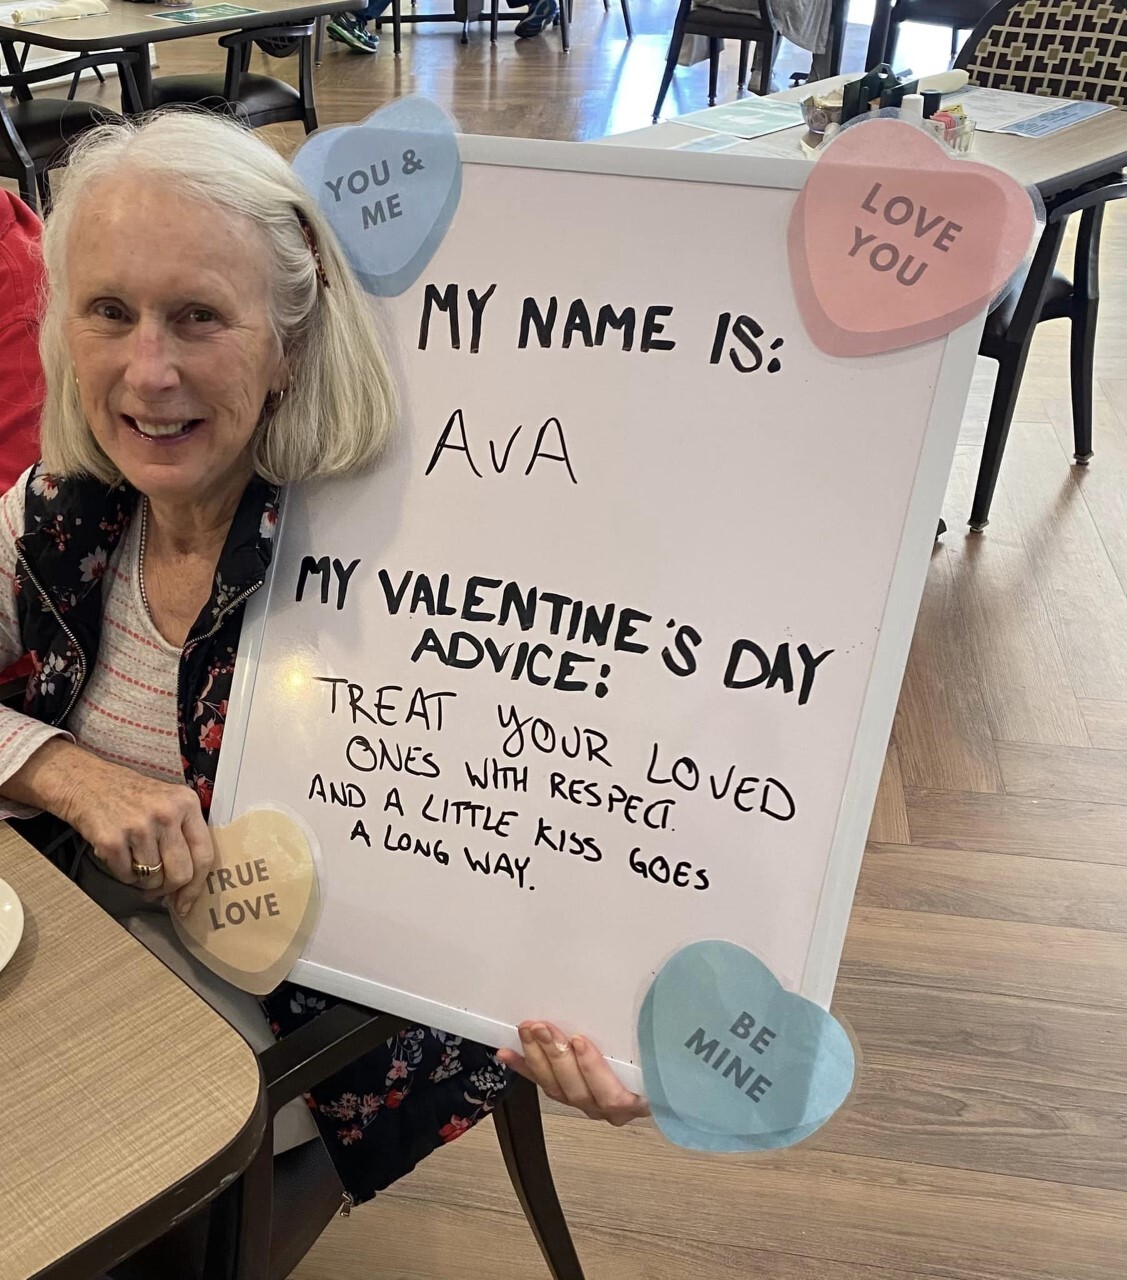 YOU &
ME
LOVE
YOU
MY NAME IS:
AVA
MY VALENTINE'S DAY
ADVICE:
TREAT YOUR LOVED
ONES WITH RESPECT.
AND A LITTLE KISS GOES
A LONG WAY.
TRUE
LOVE
BE
MINE